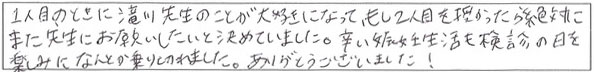 1人目のときに滝川先生のことが大好きになって、もし2人目を授かったら絶対に
また先生にお願いしたいと決めていました。辛い妊娠生活も検診の日を
楽しみになんとか乗りきれました。ありがとうございました！